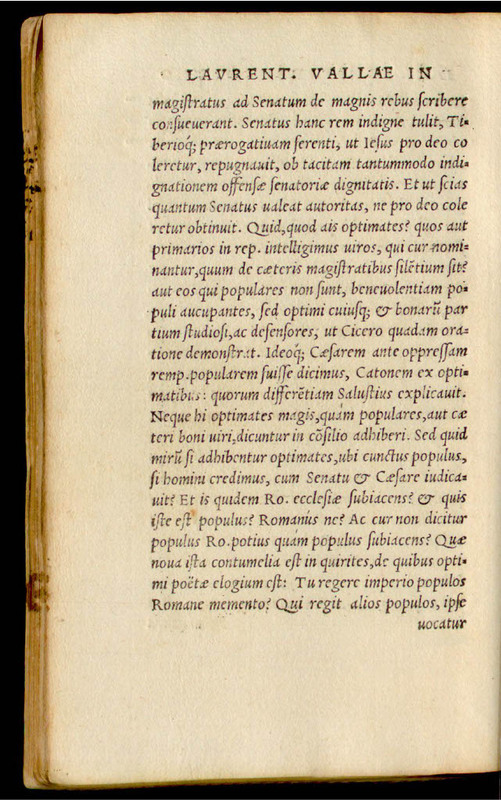 LAVRENT. VALLAE IN
magiſtratus ad Senatum de magnis rebus ſcribere
conſueuerant. Senatus hanc rem indigne tulit, Ti-
berioq́; prærogatiuam ferenti, ut Ieſus pro deo co
leretur, repugnauit, ob tacitam tantummodo indi-
gnationem offenſæ ſenatoriæ dignitatis. Et ut ſcias
quantum Senatus ualeat autoritas, ne pro deo cole
retur obtinuit. Quid, quod ais optimates? quos aut
primarios in rep. intelligimus uiros, qui cur nomi-
nantur, quum de cæteris magiſtratibus ſilẽtium ſit?
aut eos qui populares non ſunt, beneuolentiam po-
puli aucupantes, ſed optimi cuiuſq; & bonarũ par
tium ſtudioſi, ac defenſores, ut Cicero quadam ora-
tione demonſtrat. Ideoq́; Cæſarem ante oppreſſam
remp. popularem fuiſſe dicimus, Catonem ex opti-
matibus: quorum differẽtiam Saluſtius explicauit.
Neque hi optimates magis, quàm populares, aut cæ
teri boni uiri, dicuntur in cõſilio adhiberi. Sed quid
mirũ ſi adhibentur optimates, ubi cunctus populus,
ſi homini credimus, cum Senatu & Cæſare iudica-
uit? Et is quidem Ro. eccleſiæ ſubiacens? & quis
iſte eſt populus? Romanus ne? Ac cur non dicitur
populus Ro. potius quàm populus ſubiacens? Quæ
noua iſta contumelia eſt in quirites, de quibus opti-
mi poëtæ elogium eſt: Tu regere imperio populos
Romane memento? Qui regit alios populos, ipſe
uocatur